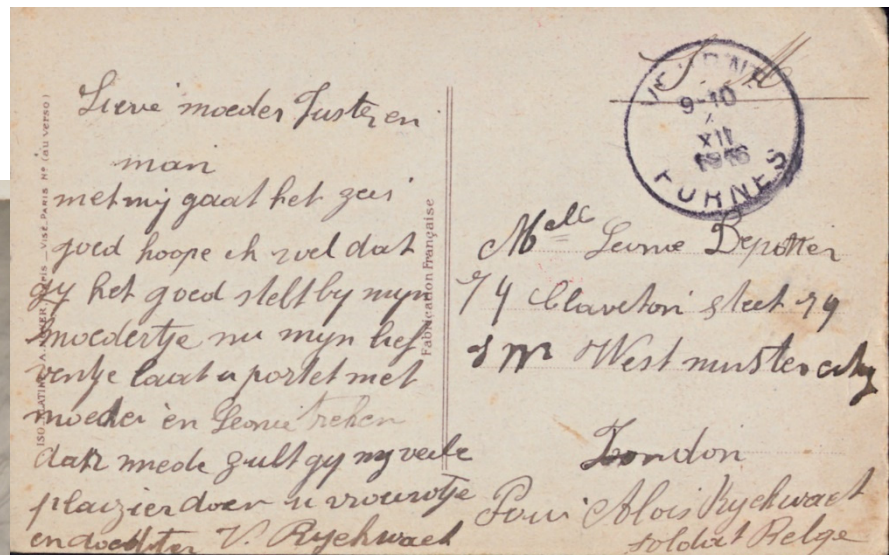 Lieve moeder Zuster en
man
met my gaat het zeer
goed hoope ik wel dat
gy het goed stelt by myn
moedertje nu myn lief
ventje laat u portet met
moeder en Leonie treken
daar mede zult gy my veele
plaizier doen u vrouwtje
en dochter V. Ryckwaert
ISO
PARIS _ VISÉ_PARIS Nº (au verso)
Fabrication Française
S M
VEURNE
9-10
XII
1916
FURNES
Mell Leonie Depotter
79 Claverton street 79
S W Westminster city
London
Pour Alois Ryckwaert
soldat Belge